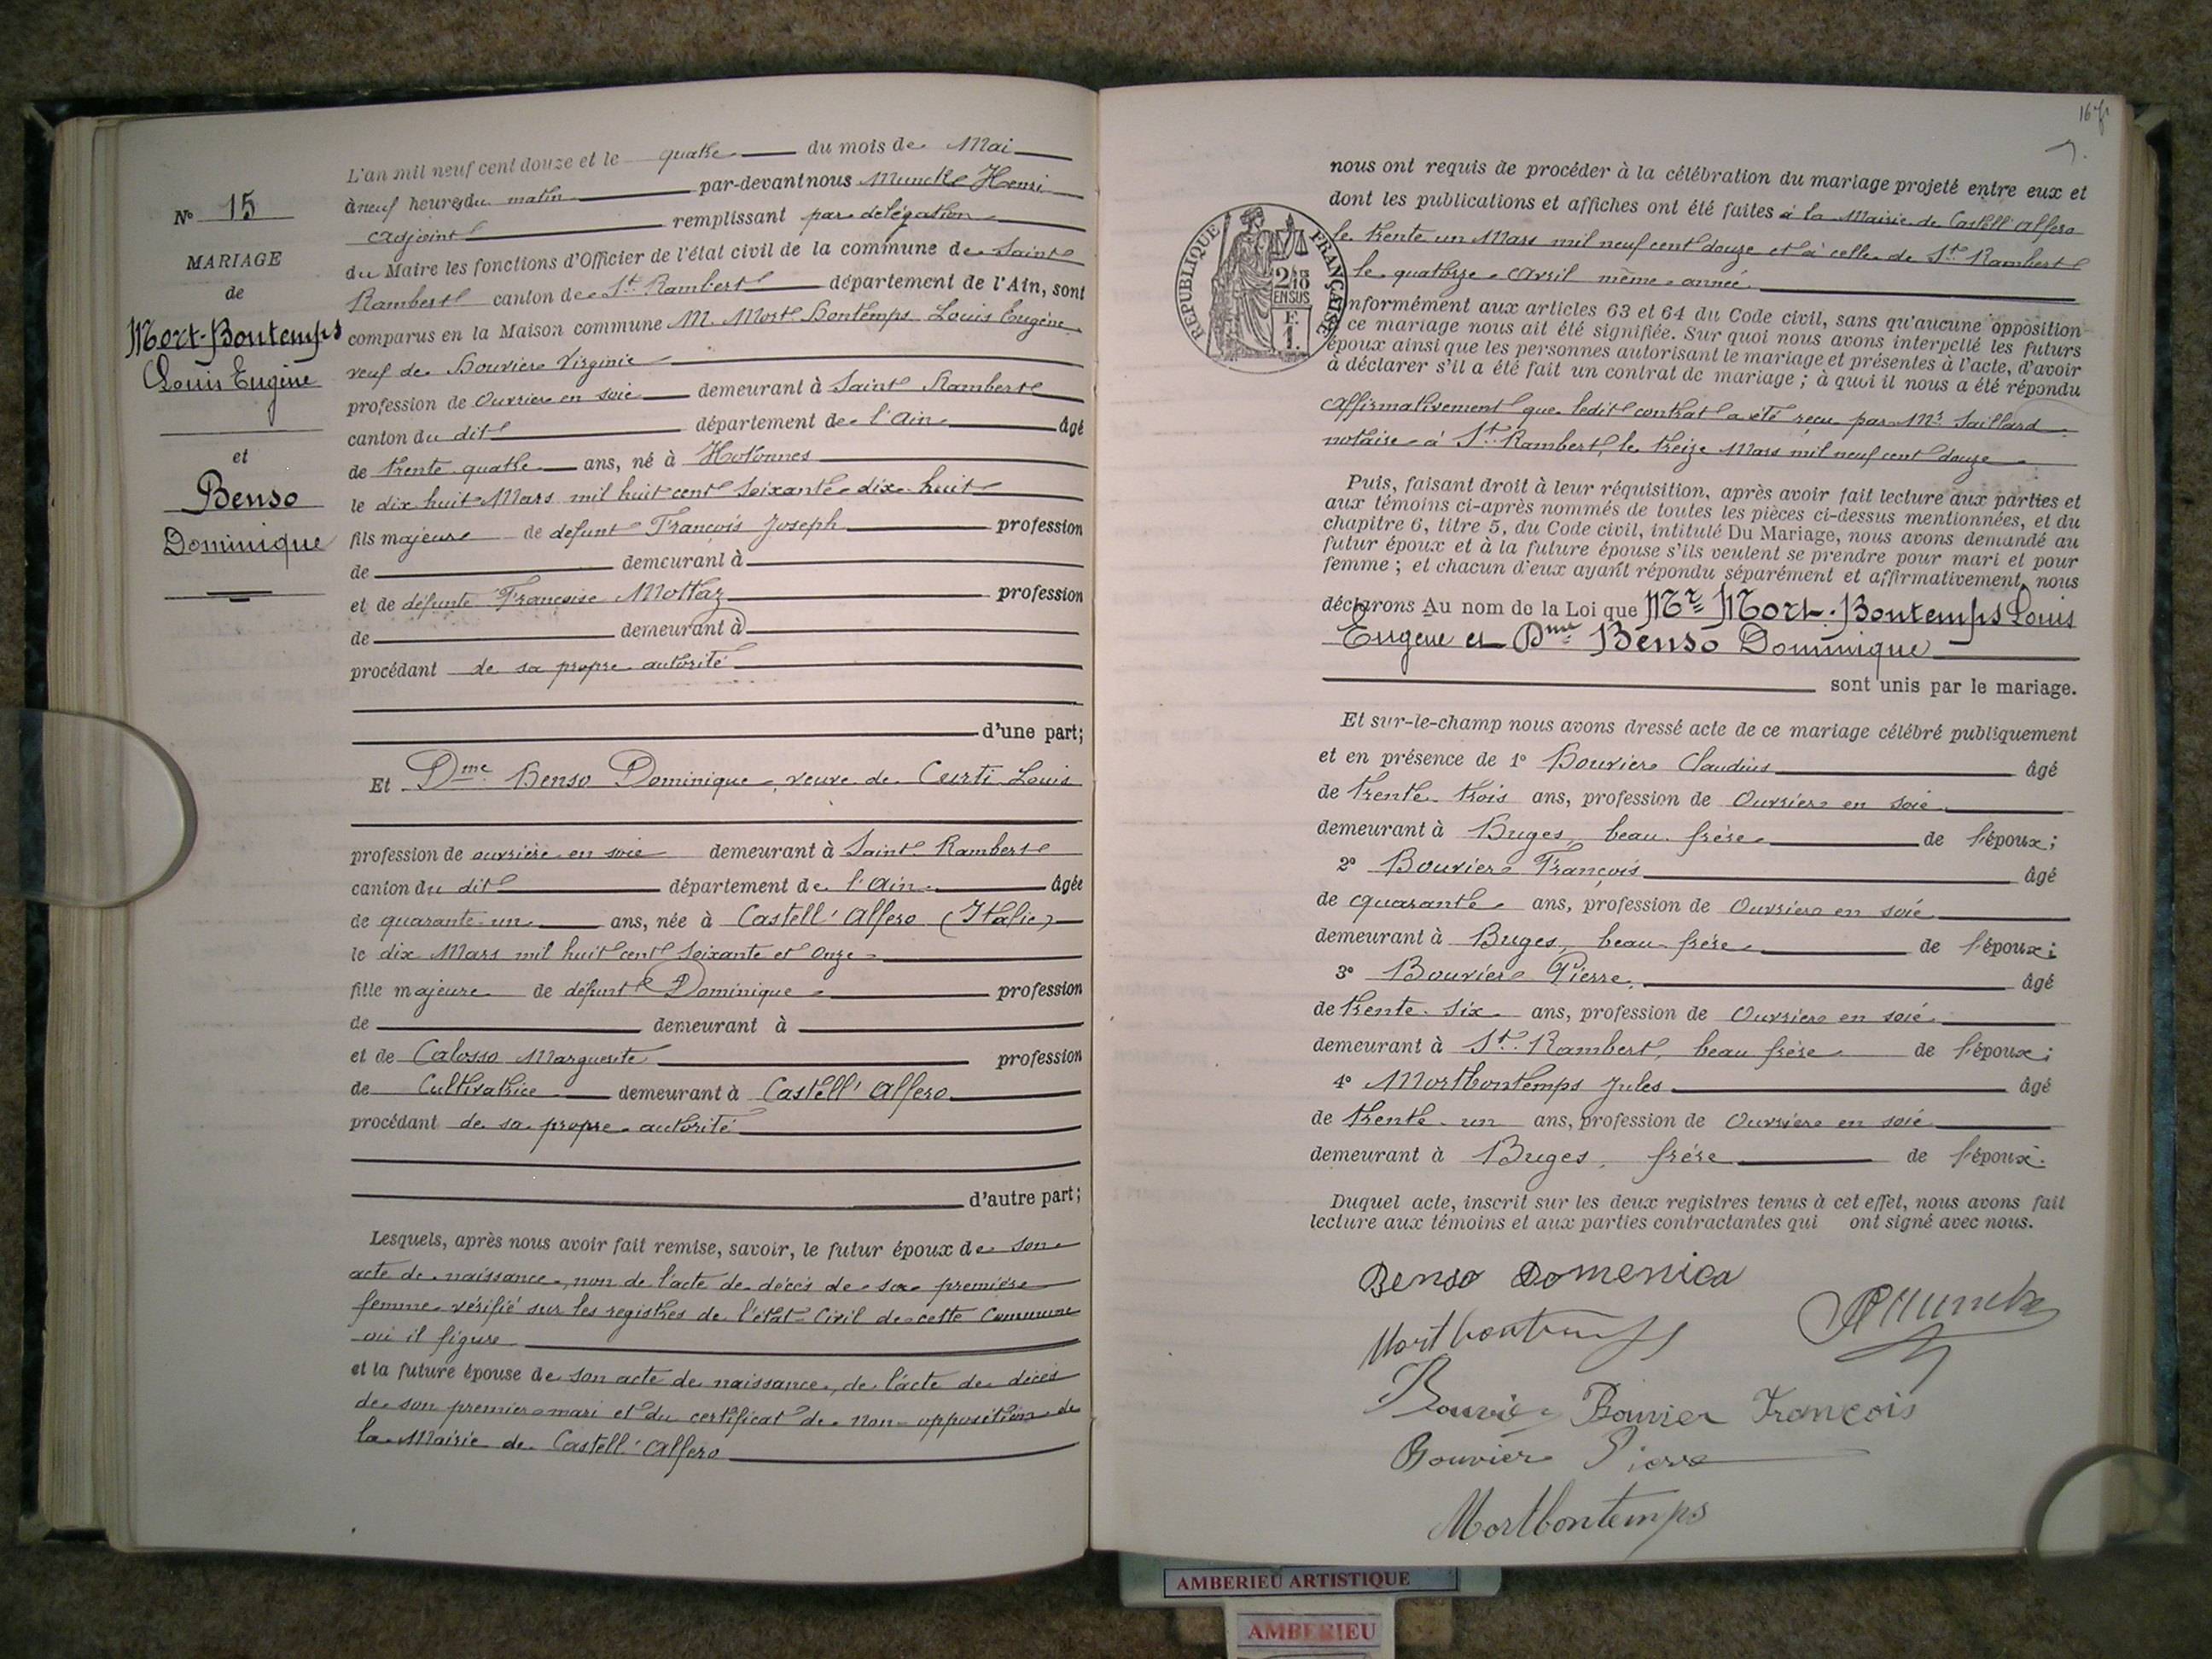 N° 15
MARIAGE
de
Mort-Bontemps
Louis Eugène
et
Benso
Dominique
L'an mil neuf cent douze et le quatre du mois de Mai
à neuf heures du matin par-devant nous Munck Henri
adjoint remplissant par délégation
du Maire les fonctions d'Officier de l'état civil de la commune de Saint
Rambert canton de St Rambert département de l'Ain, sont
comparus en la Maison commune M. Mort-Bontemps Louis Eugène
veuf de Bouvier Virginie
profession de Ouvrier en soie demeurant à Saint Rambert
canton du dit département de l'Ain âgé
de trente quatre ans, né à Hotonnes
le dix huit Mars mil huit cent soixante dix-huit
fils majeur de défunt François Joseph profession
de demeurant à
et de défunte Françoise Mottaz profession
de demeurant à
procédant de sa propre autorité
d'une part;
Et Dme Benso Dominique, veuve de Curti Louis
profession de ouvrière en soie demeurant à Saint Rambert
canton du dit département de l'Ain âgée
de quarante-un ans, née à Castell'Alfero (Italie)
le dix Mars mil huit cent soixante et onze
fille majeure de défunt Dominique profession
de demeurant à
et de Calosso Marguerite profession
de Cultivatrice demeurant à Castell'Alfero
procédant de sa propre autorité
d'autre part;
Lesquels, après nous avoir fait remise, savoir, le futur époux de son
acte de naissance, non de l'acte de décès de sa première
femme vérifié sur les registres de l'état-Civil de cette Commune
où il figure
et la future épouse de son acte de naissance, de l'acte de décès
de son premier mari et du certificat de non-opposition de
la Mairie de Castell'Alfero
167
RÉPUBLIQUE FRANÇAISE
2/10
EN SUS
F.
1.
nous ont requis de procéder à la célébration du mariage projeté entre eux et
dont les publications et affiches ont été faites à la Mairie de Castell'Alfero
le trente un Mars mil neuf cent douze et à celle de St Rambert
le quatorze Avril même année
nformément aux articles 63 et 64 du Code civil, sans qu'aucune opposition
ce mariage nous ait été signifiée. Sur quoi nous avons interpellé les futurs
époux ainsi que les personnes autorisant le mariage et présentes à l'acte, d'avoir
à déclarer s'il a été fait un contrat de mariage ; à quoi il nous a été répondu
affirmativement que ledit contrat a été reçu par Me Saillard
notaire à St Rambert, le treize Mars mil neuf cent douze
Puis, faisant droit à leur réquisition, après avoir fait lecture aux parties et
aux témoins ci-après nommés de toutes les pièces ci-dessus mentionnées, et du
chapitre 6, titre 5, du Code civil, intitulé Du Mariage, nous avons demandé au
futur époux et à la future épouse s'ils veulent se prendre pour mari et pour
femme ; et chacun d'eux ayant répondu séparément et affirmativement, nous
déclarons Au nom de la Loi que Mr Mort-Bontemps Louis
Eugène et Dme Benso Dominique
sont unis par le mariage.
Et sur-le-champ nous avons dressé acte de ce mariage célébré publiquement
et en présence de 1° Bouvier Claudius âgé
de trente-trois ans, profession de Ouvrier en soie
demeurant à Buges, beau-frère de l'époux;
2° Bouvier François âgé
de quarante ans, profession de Ouvrier en soie
demeurant à Buges, beau-frère de l'époux;
3° Bouvier Pierre, âgé
de trente-six ans, profession de Ouvrier en soie
demeurant à St Rambert, beau frère de l'époux;
4° Mortbontemps Jules âgé
de trente-un ans, profession de Ouvrier en soie
demeurant à Buges, frère de l'époux.
Duquel acte, inscrit sur les deux registres tenus à cet effet, nous avons fait
lecture aux témoins et aux parties contractantes qui ont signé avec nous.
Benso Domenica
Mortbontemps
HMunck
Bouvier Bouvier François
Bouvier Pierre
Mortbontemps
AMBERIEU ARTISTIQUE
AMBERIEU